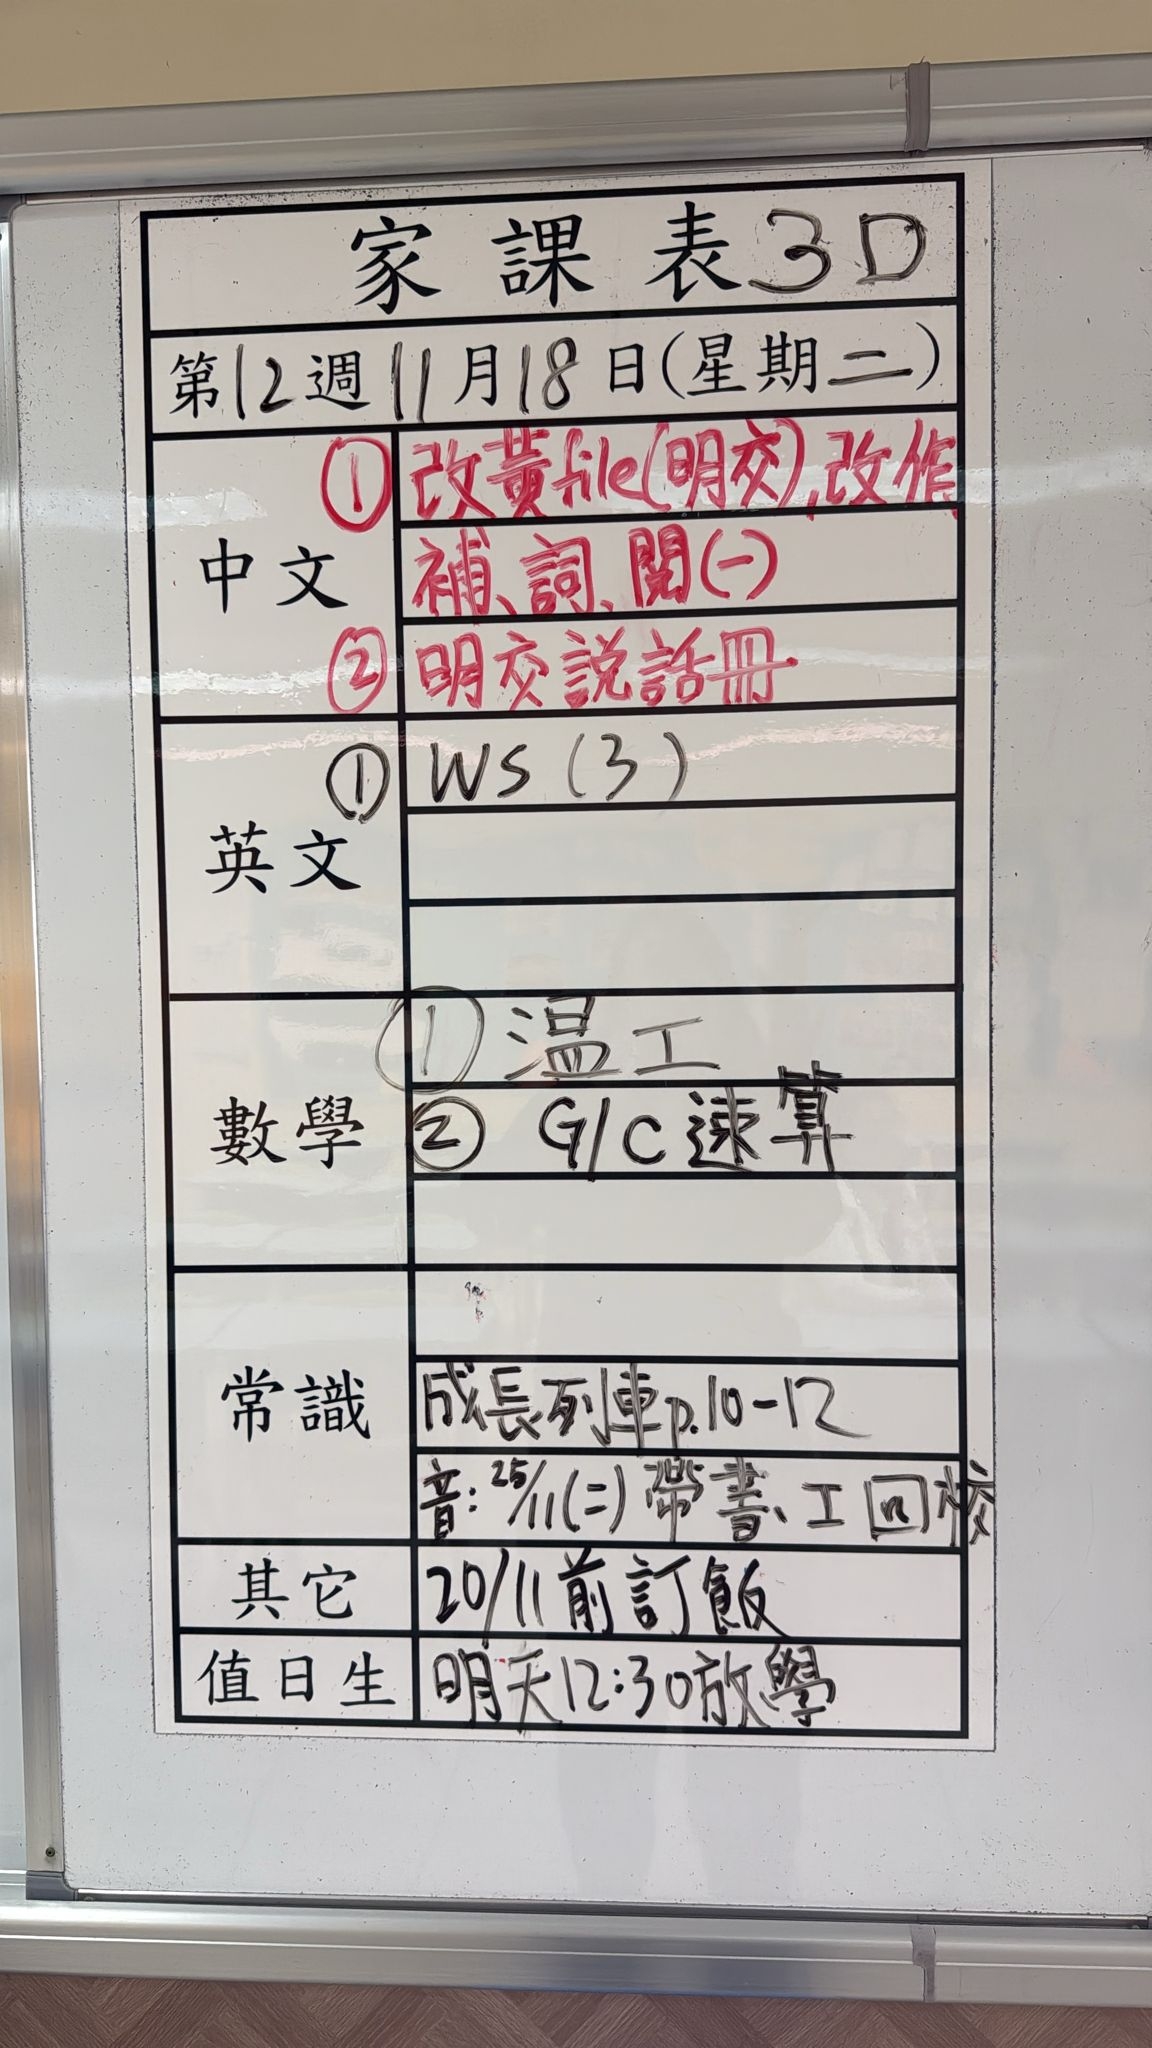 家課表3D
第12週11月18日(星期二)
中文
① 改黃file(明交),改作
補、詞、閱(一)
② 明交說話冊
英文
① WS(3)
數學
① 温工
② G/C速算
常識
成長列車p.10-12
音:25/11(二)帶書、工回校
其它 20/11前訂飯
值日生 明天12:30放學